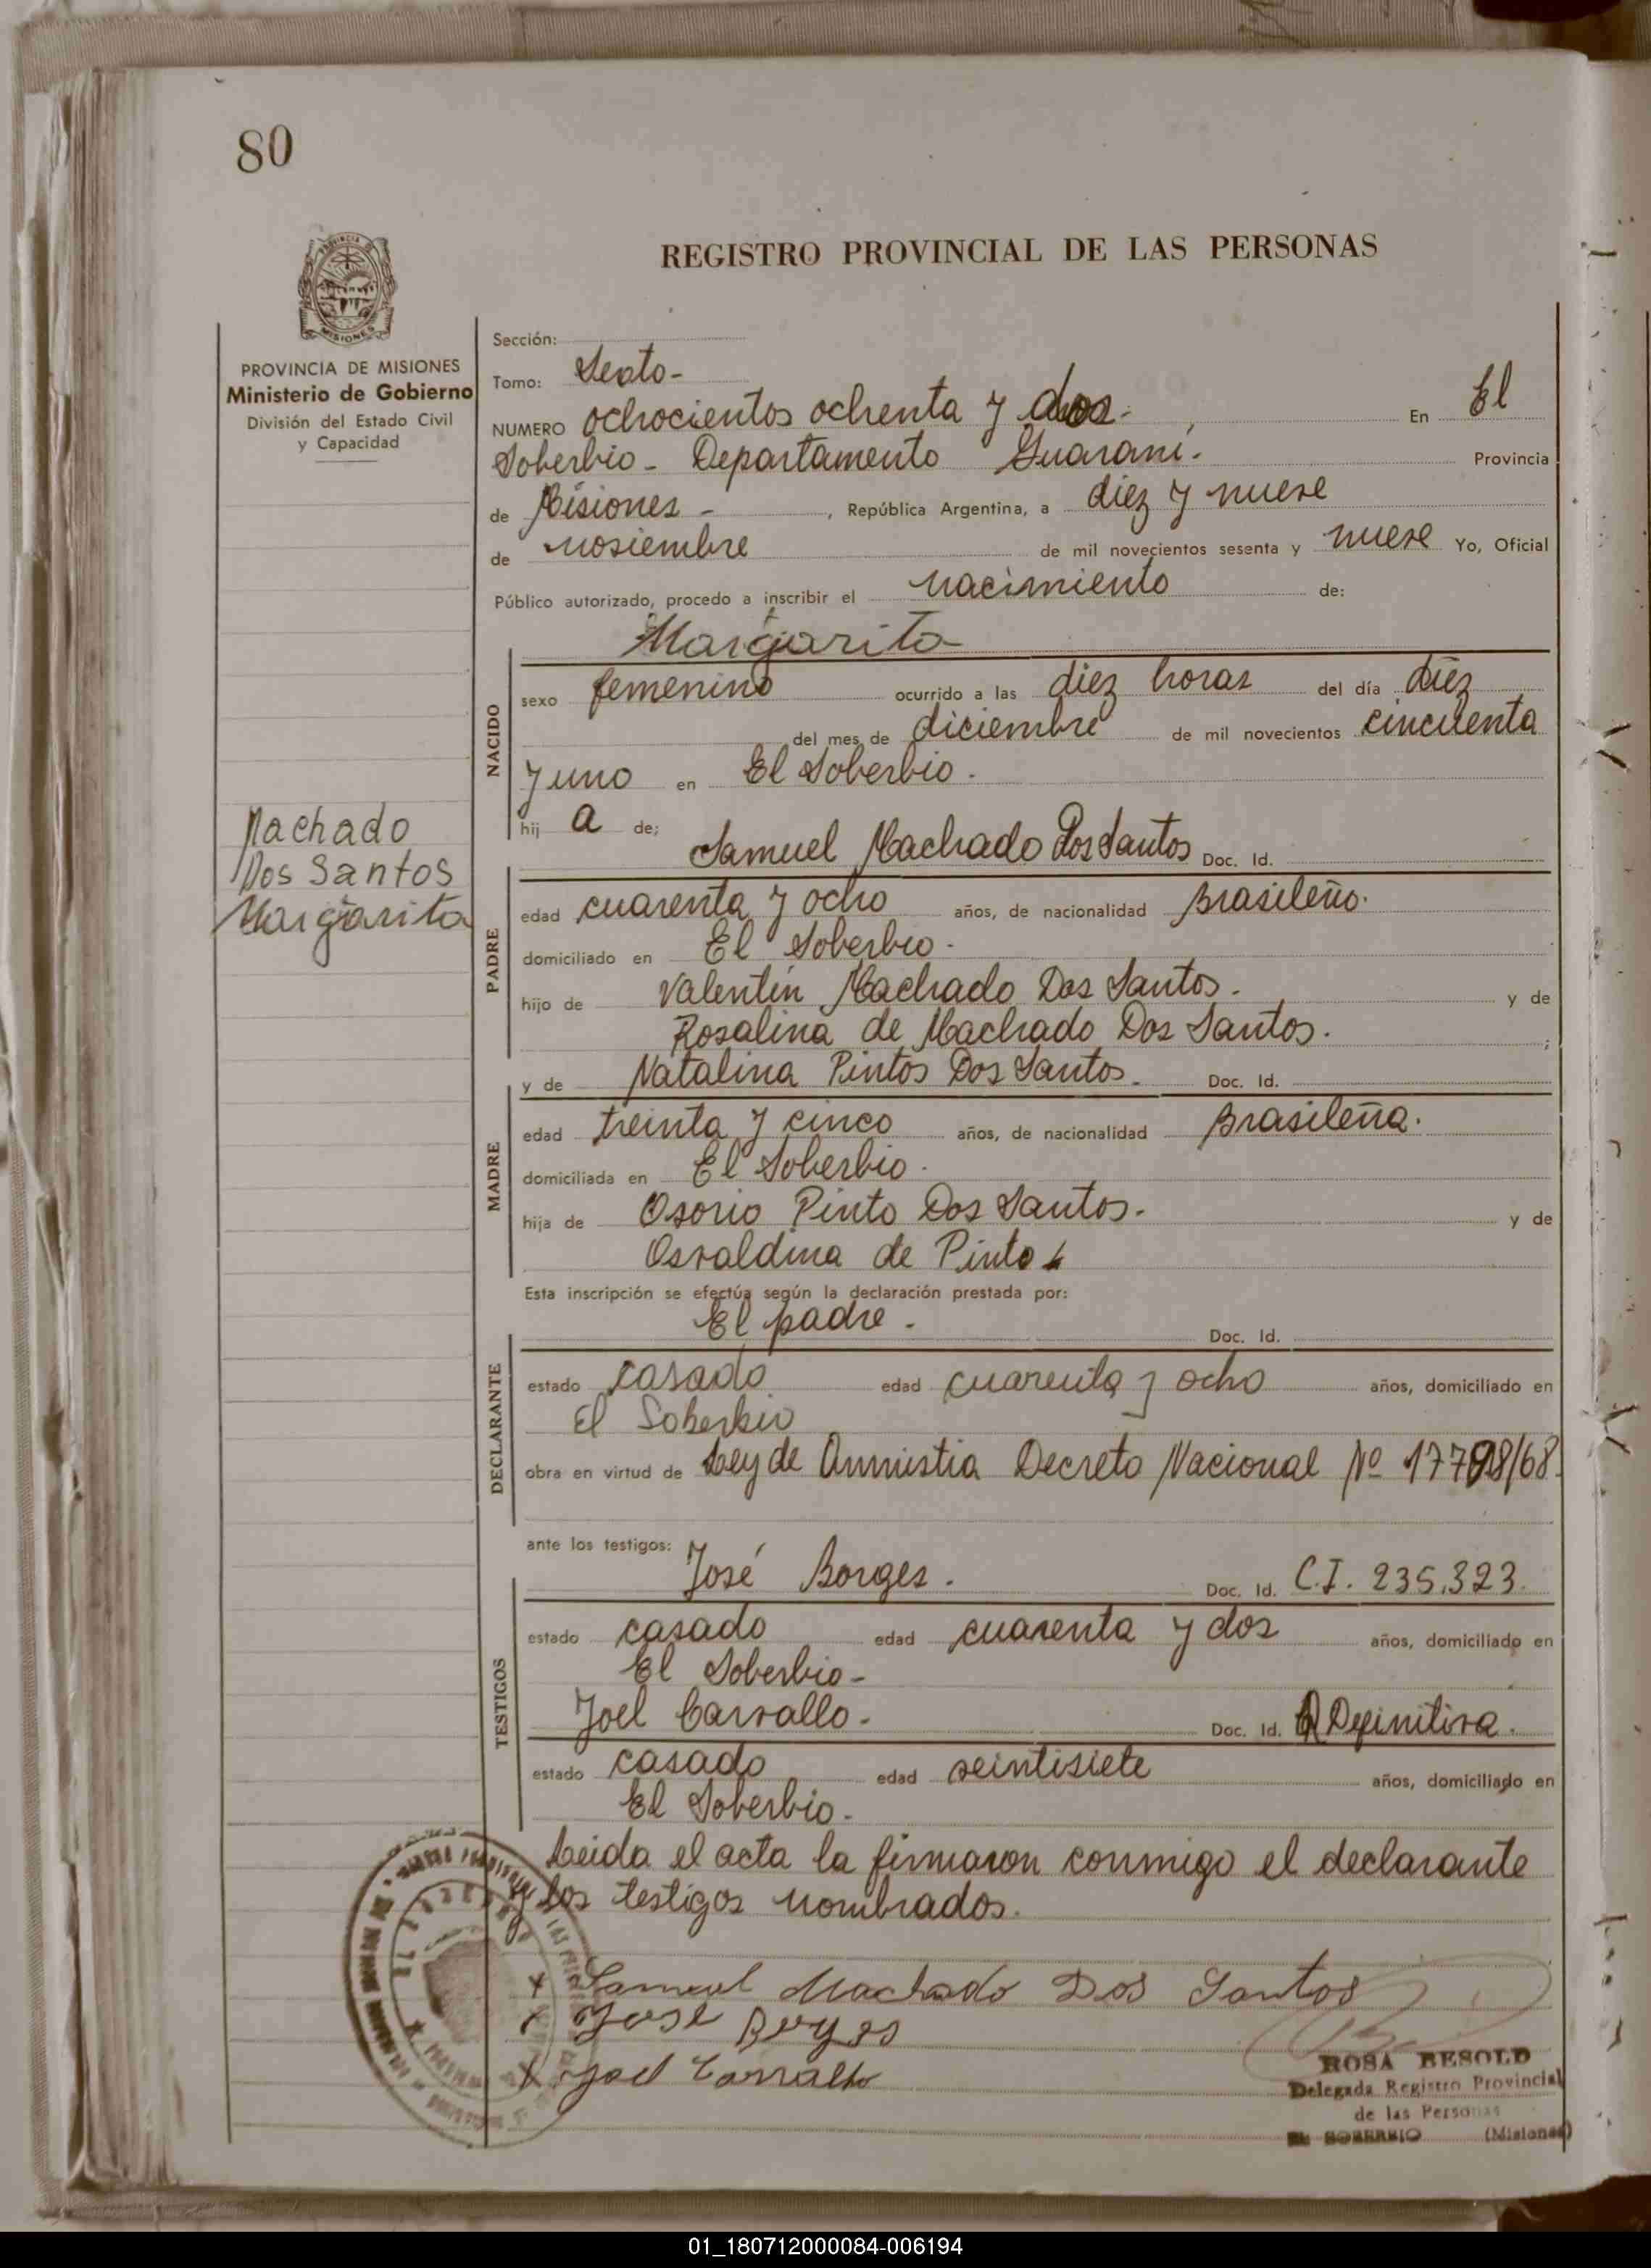 80
REGISTRO PROVINCIAL DE LAS PERSONAS
MISIONES
PROVINCIA DE MISIONES
Ministerio de Gobierno
División del Estado Civil
y Capacidad
Machado
Dos Santos
Margarita
Sección:
Tomo: Sexto-
NUMERO ochocientos ochenta y dos-, En El
Soberbio - Departamento Guaraní. Provincia
de Misiones -, República Argentina, a diez y nueve
de noviembre de mil novecientos sesenta y nueve Yo, Oficial
Público autorizado, procedo a inscribir el nacimiento de:
Margarita
NACIDO
sexo femenino ocurrido a las diez horas del día diez
del mes de diciembre de mil novecientos cincuenta
y uno en El Soberbio.
hij a de; Samuel Machado Dos Santos Doc. Id.
PADRE
edad cuarenta y ocho años, de nacionalidad Brasileño.
domiciliado en El Soberbio.
hijo de Valentín Machado Dos Santos. y de
Rosalina de Machado Dos Santos. ;
y de Natalina Pintos Dos Santos. Doc. Id.
MADRE
edad treinta y cinco años, de nacionalidad Brasileña.
domiciliada en El Soberbio.
hija de Osorio Pinto Dos Santos. y de
Osvaldina de Pinto
Esta inscripción se efectúa según la declaración prestada por:
El padre. Doc. Id.
DECLARANTE
estado casado edad cuarenta y ocho años, domiciliado en
El Soberbio
obra en virtud de Ley de Amnistia Decreto Nacional Nº 17798/68.
ante los testigos:
José Borges. Doc. Id. C.I. 235.323.
TESTIGOS
estado casado edad cuarenta y dos años, domiciliado en
El Soberbio-
Joel Carvallo. Doc. Id. Definitiva.
estado casado edad veintisiete años, domiciliado en
El Soberbio.
Leida el acta la firmaron conmigo el declarante
y los testigos nombrados.
x Samuel Machado Dos Santos
x José Borges
x Joel Carvalho
ROSA BESOLD
Delegada Registro Provincial
de las Personas
EL SOBERBIO (Misiones)
01_180712000084-006194